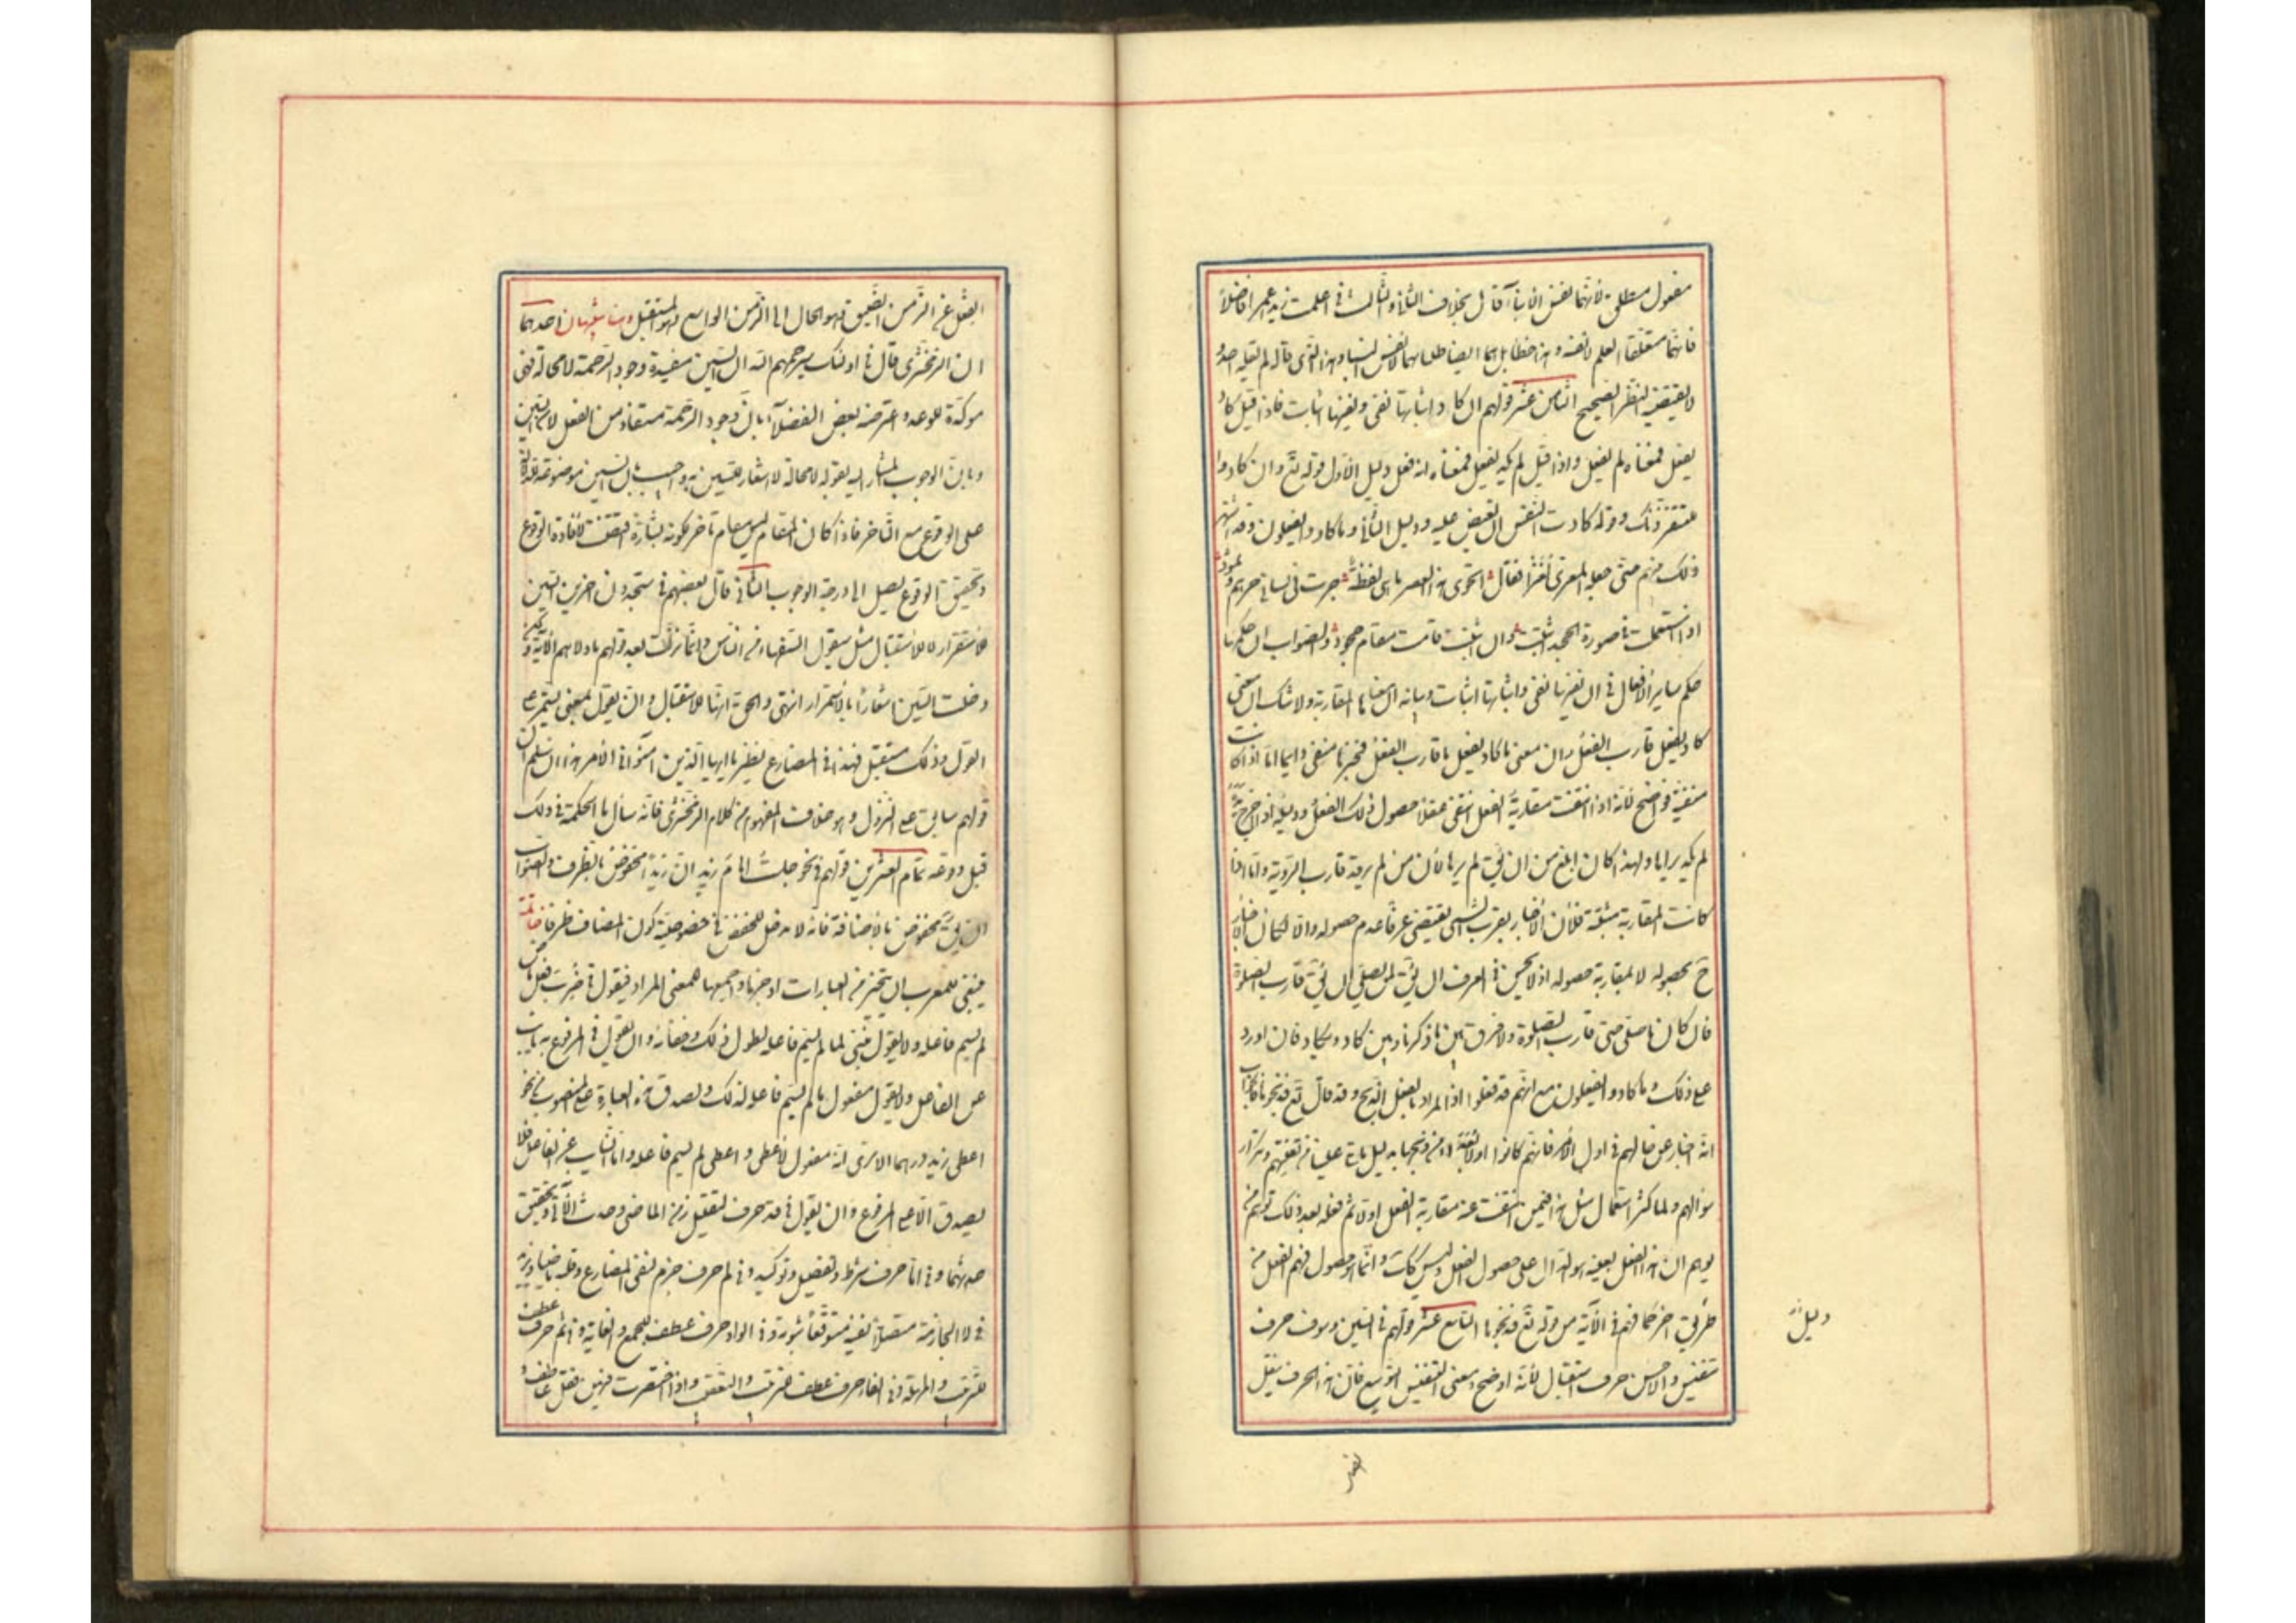 مفعول مطلق لأنهما نفس الأنباء قال بخلاف الثاني والثالث في اعلمت زيد عمرا فاضلا
فانهما متعلقا العلم لا نفسه وهذا خطا بل هما ايضا طلبا بهما لا نفس النبا وهذا الذي قاله لم يقله احد و
لا يقتضيه النظر الصحيح الثامن عشر قولهم ان كاد اثباتها نفى ونفيها اثبات فاذا قيل كاد
يفعل فمعناه لم يفعل واذا قيل لم يكد يفعل فمعناه انه فعل دليل الاول قوله تع وان كادوا
ليفتنونك وقوله كادت النفس ان تفيض عليه ودليل الثاني وما كادوا يفعلون وقد اشتهر
ذلك بينهم حتى جعله المعرى لغزا فقال انحوى هذا العصر ما هي لفظة جرت في لساني جرهم وثمود
اذا استعملت في صورة الجحد اثبتت وان اثبتت قامت مقام جحود والصواب ان حكمها
حكم ساير الأفعال في ان نفيها نفى واثباتها اثبات وبيانه ان معناها المقاربة ولا شك ان معنى
كاد يفعل قارب الفعل وان معنى ما كاد يفعل ما قارب الفعل فخبرها منفى دايما اما اذا كانت
منفية فواضح لأنه اذا انتفت مقاربة الفعل انتفى عقلا حصول ذلك الفعل ودليله اذا اخرج يده
لم يكد يراها ولهذا كان ابلغ من ان يق لم يرها لأن من لم ير قد قارب الرؤية واما اذا
كانت المقاربة مثبتة فلأن الأخبار بقرب الشىء يقتضى عرفا عدم حصوله والا لكان الاخبار
ح بحصوله لا بمقاربة حصوله اذ لا يحسن في العرف ان يق لمن صلى ان يق قارب الصلوة
فان كان ما صلى حتى قارب الصلوة ولا فرق بين ما ذكرنا وبين كاد ويكاد فان اورد
على ذلك وما كادوا يفعلون مع انهم قد فعلوا اذ المراد بالفعل الذبح وقد قال تع فذبحوها فالجواب
انه اخبار عن حالهم في اول الأمر فانهم كانوا اولا بعداء من ذبحها بدليل ما تلى علينا من تعنتهم وتكرار
سؤالهم ولما كثر استعمال مثل هذا فيمن انتفت عنه مقاربة الفعل اولا ثم فعله بعد ذلك توهم من
يوهم ان هذا الفعل بعينه هو الدال على حصول الفعل وليس كك وانما حصول فهم الفعل من
دليل
طريق اخر كما فهم في الآية من قوله تع فذبحوها التاسع عشر قولهم في السين وسوف حرف
تنفيس والاحسن حرف استقبال لأنه اوضح ومعنى التنفيس التوسيع فان هذا الحرف ينقل
الفعل عن الزمن الضيق وهو الحال الى الزمن الواسع وهو المستقبل وهنا تنبيهان احدهما
ان الزمخشرى قال في اولئك سيرحمهم الله ان السين مفيدة وجود الرحمة لا محالة فهى
موكدة للوعد واعترضه بعض الفضلاء بان وجود الرحمة مستفاد من الفعل لا من السين
وبان الوجوب المشار اليه بقوله لا محالة لا اشعار للسين به واجيب بان السين موضوعة للدلالة
على الوقوع مع التاخر فاذا كان المقام ليس مقام تاخر لكونه بشارة تمحضت لافادة الوقوع
وتحقيق الوقوع يصل الى درجة الوجوب الثانى قال بعضهم في ستجدون اخرين السين
للاستقرار لا للاستقبال مثل سيقول السفهاء من الناس وانما نزلت بعد قولهم ما ولاهم الآية ولكن
دخلت السين اشعارا بالأستمرار انتهى والحق انها للاستقبال وان يقول بمعنى يستمر على
القول وذلك مستقبل فهذا في المضارع نظير يا ايها الذين امنوا في الامر هذا ان سلم ان
قولهم سابق على النزول وهو خلاف المفهوم من كلام الزمخشرى فانه سأل ما الحكمة في ذلك
قبل وقوعه تمام العشرين قولهم في نحو جلست امام زيد ان زيدا مخفوض بالظرف والصواب
ان يق مخفوض بالأضافة فانه لا مدخل للخفض في خصوصية كون المضاف ظرفا خاتمة
ينبغى للمعرب ان يتخير من العبارات اوجزها واجمعها للمعنى المراد فيقول في ضرب فعل ماض
لم يسم فاعله ولا يقول مبنى لما لم يسم فاعله لطول ذلك وخفائه وان يقول في المرفوع به نايب
عن الفاعل ولا يقول مفعول ما لم يسم فاعله لذلك ولصدق هذه العبارة على المنصوب في نحو
اعطى زيد درهما الا ترى انه مفعول لأعطى واعطى لم يسم فاعله واما النايب عن الفاعل فلا
يصدق الا على المرفوع وان يقول في قد حرف لتقليل زمن الماضى وحدث الآتى وتحقيق
حدثهما وفي اما حرف شرط وتفصيل وتوكيد وفي لم حرف جزم لنفى المضارع وقلبه ماضيا ويزيد
في لما الجازمة متصلا نفيه متوقعا ثبوته وفي الواو حرف عطف للجمع والغاية وثم حرف عطف
للترتيب والمهلة وفي الفاء حرف عطف للترتيب والتعقيب واذا اختصرت فيهن فقل عاطف و